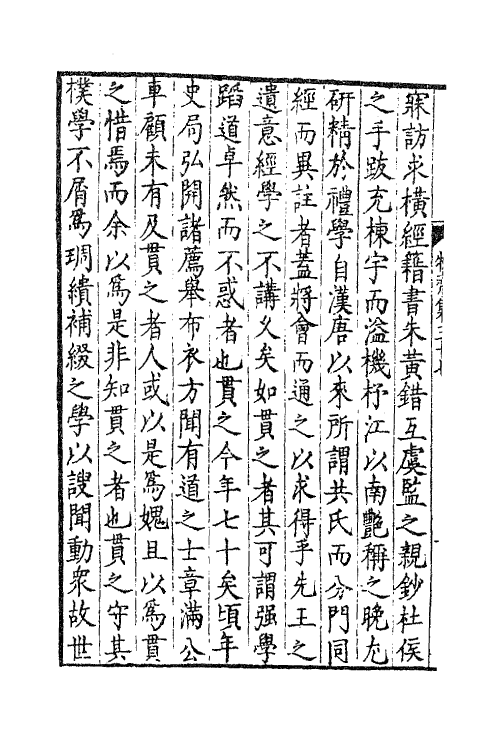 寐訪求橫經籍書朱黃錯互虞監之親鈔杜侯
之手跋充棟宇而溢機杼江以南艷稱之晚尤
研精於禮學自漢唐以來所謂共氏而分門同
經而異註者葢將會而通之以求得乎先王之
遺意經學之不講乆矣如貫之者其可謂强學
蹈道卓然而不惑者也貫之今年七十矣頃年
史局弘開諸薦舉布衣方聞有道之士章滿公
車顧未有及貫之者人或以是爲媿且以爲貫
之惜焉而余以爲是非知貫之者也貫之守其
樸學不屑爲琱繢補綴之學以謏聞動衆故世